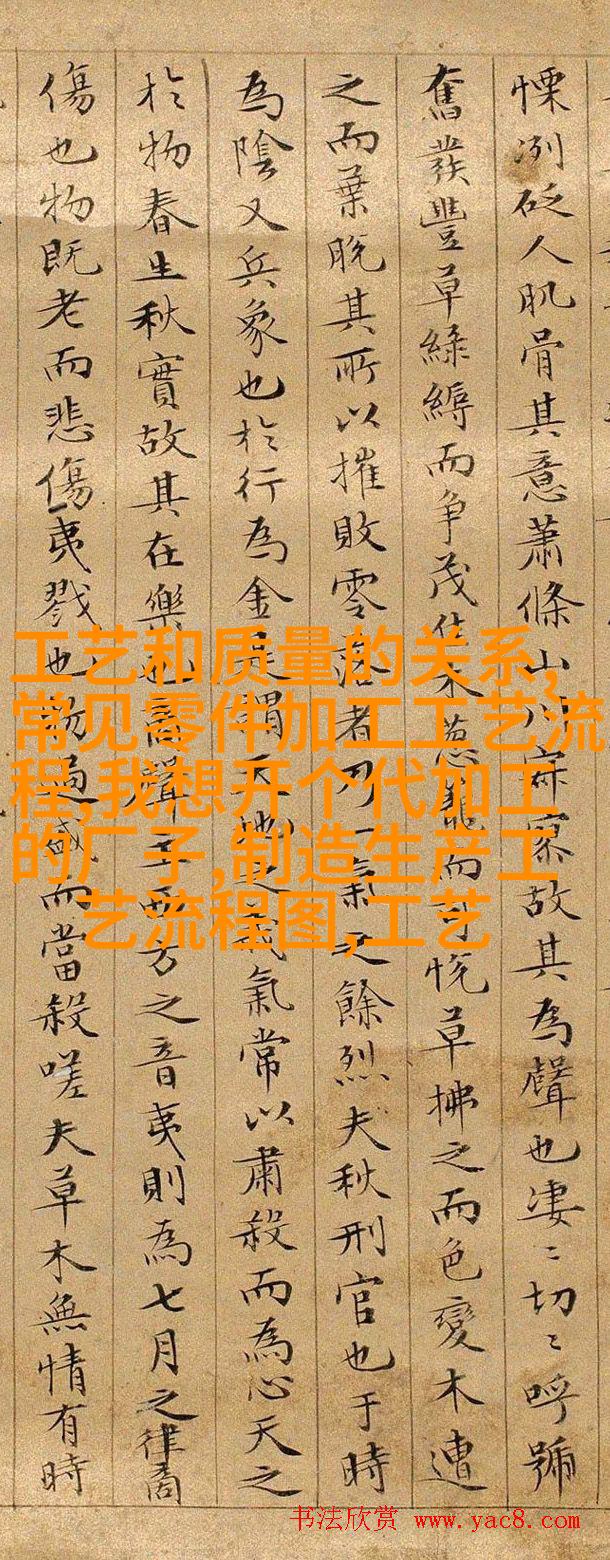 慄冽砭人肌骨其意蕭條山川寂寥故其為聲也凄〻切〻呼號
奮發豐草綠縟而争茂佳木葱蘢而可悅草拂之而色變木遭
之而葉脫其所以摧敗零落者乃一氣之餘烈夫秋刑官也于時
為陰又兵象也於行為金是謂天地之義氣常以肅殺而為心天之
於物春生秋實故其在樂也商聲主西方之音夷則為七月之律商
傷也物既老而悲傷夷戮也物過盛而當殺嗟夫草木無情有時
工艺和质量的关系,
常见零件加工工艺流
程,我想开个代加工
的厂子,制造生产工
艺流程图,工艺
书法欣赏 www.yac8.com